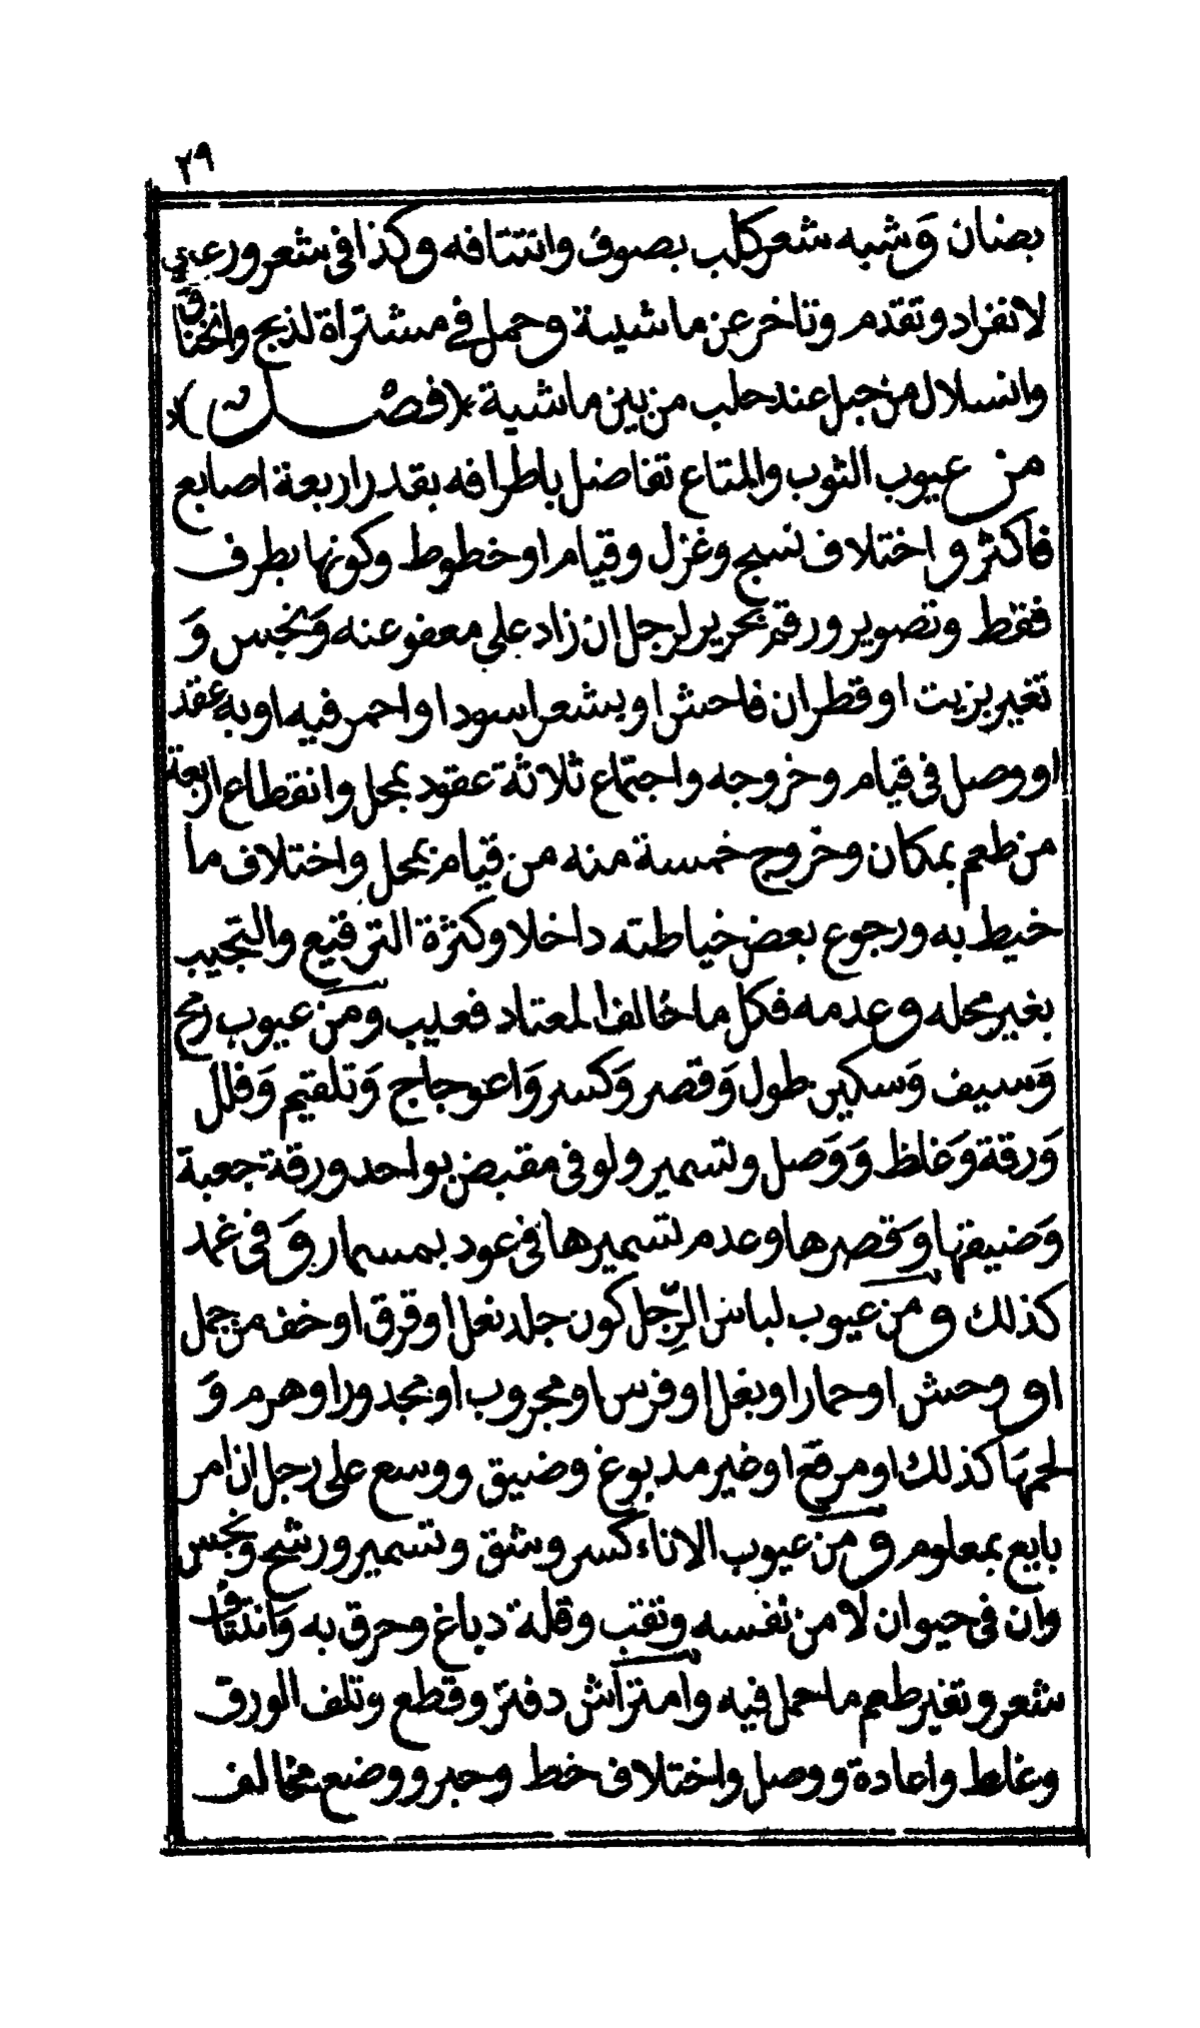 ٢٩
بضان وَشبه شعر كلب بصوف وانتتافه وكذا فى شعر ورعي
لانفراد وتقدم وتاخر عن ماشية وحمل في مشتراة لذبح وانخناق
وانسلال من حبل عند حلب من بين ماشية ﴿فصل﴾
من عيوب الثوب والمتاع تفاضل باطرافه بقدر اربعة اصابع
فاكثر و اختلاف نسج وغزل وقيام او خطوط وكونها بطرف
فقط وتصوير ورقم بحرير لرجل ان زاد على معفو عنه وَنجس وَ
تغير بزيت او قطران فاحش او بشعر اسود او احمر فيه او به عقد
او وصل فى قيام وخروجه واجتماع ثلاثة عقود بمحل وانقطاع اربعة
من طعم بمكان وخروج خمسة منه من قيام بمحل واختلاف ما
خيط به ورجوع بعض خياطته داخلا وكثرة الترقيع والتجيب
بغير محله وعدمه فكل ما خالف المعتاد فعيب ومن عيوب رمح
وَسيف وَسكين طول وَقصر وَكسر وَاعوجاج وَتلقيم وَفلل
وَرقة وَغلظ وَوَصل وتسمير ولو فى مقبض بواحد ورقة جعبة
وَضيقها وَقصرها وعدم تسميرها فى عود بمسمار وَ فى غمد
كذلك ومن عيوب لباس الرِّجل كون جلد نعل او قرق او خف من جمل
او وحش او حمار او بغل او فرس او مجروب او مجدور او هرم وَ
لحمها كذلك او مرقع او غير مدبوغ وضيق ووسع على رجل ان امر
بايع بمعلوم ومن عيوب الاناء كسر وشق وتسمير ورشح ونجس
وان فى حيوان لا من نفسه وثقب وقلة دباغ وحرق به وَانتتاف
شعر وتغير طعم ما حمل فيه وامتراش دفتر وقطع وتلف الورق
وغلط واعادة ووصل واختلاف خط وحبر ووضع مخالف